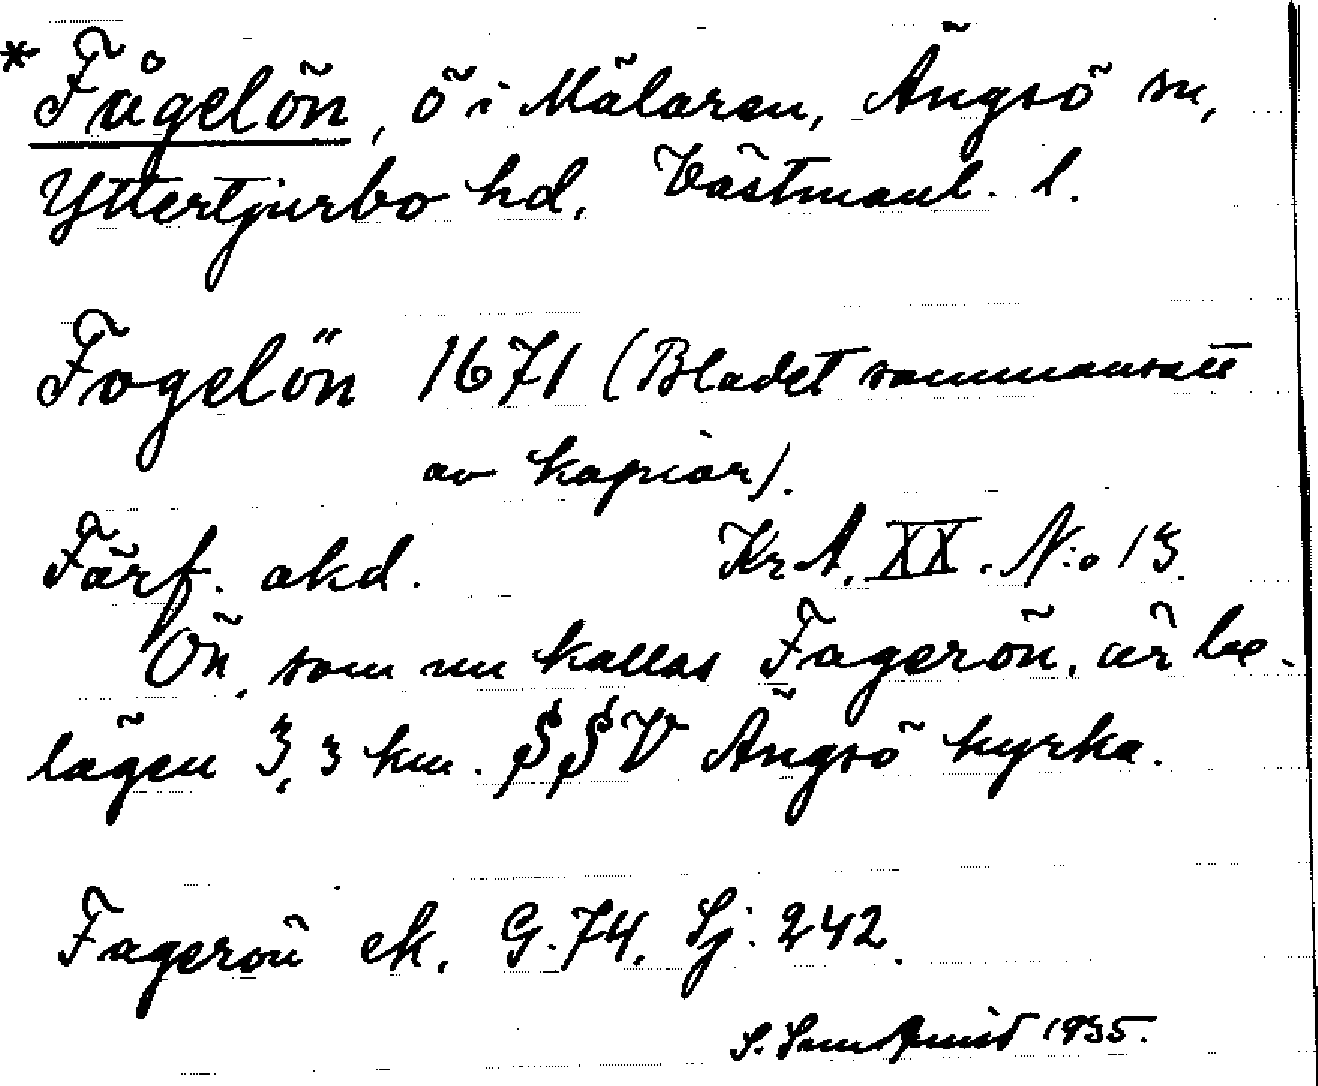 * Fågelön, ö i Mälaren, Ängsö sn,
Yttertjurbo hd. Västmanl. l.
Fogelön 1671 (Bladet sammansatt
av kopior).
Förf. okd. Kr. A. XX. N:o 13.
Ön, som nu kallas Fagerön, är be-
lägen 3,3 km. SSV Ängsö kyrka.
Fagerön ek. G. 74. Sj. 242.
S. 1935.